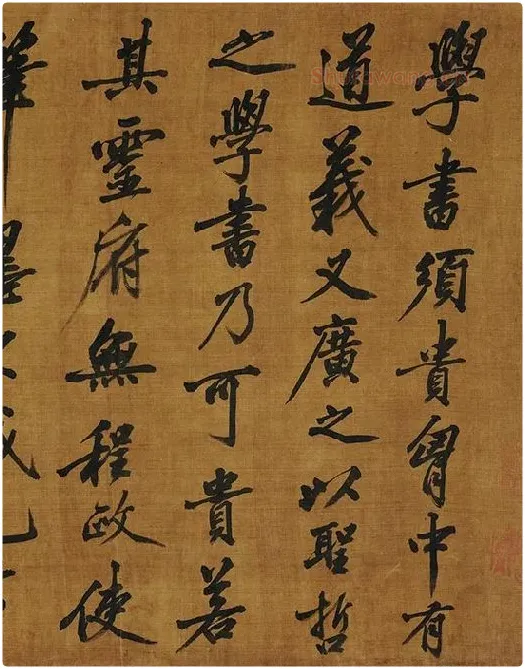 學書須貴胷中有
道義又廣之以聖哲
之學書乃可貴若
其靈府無程政使
筆墨